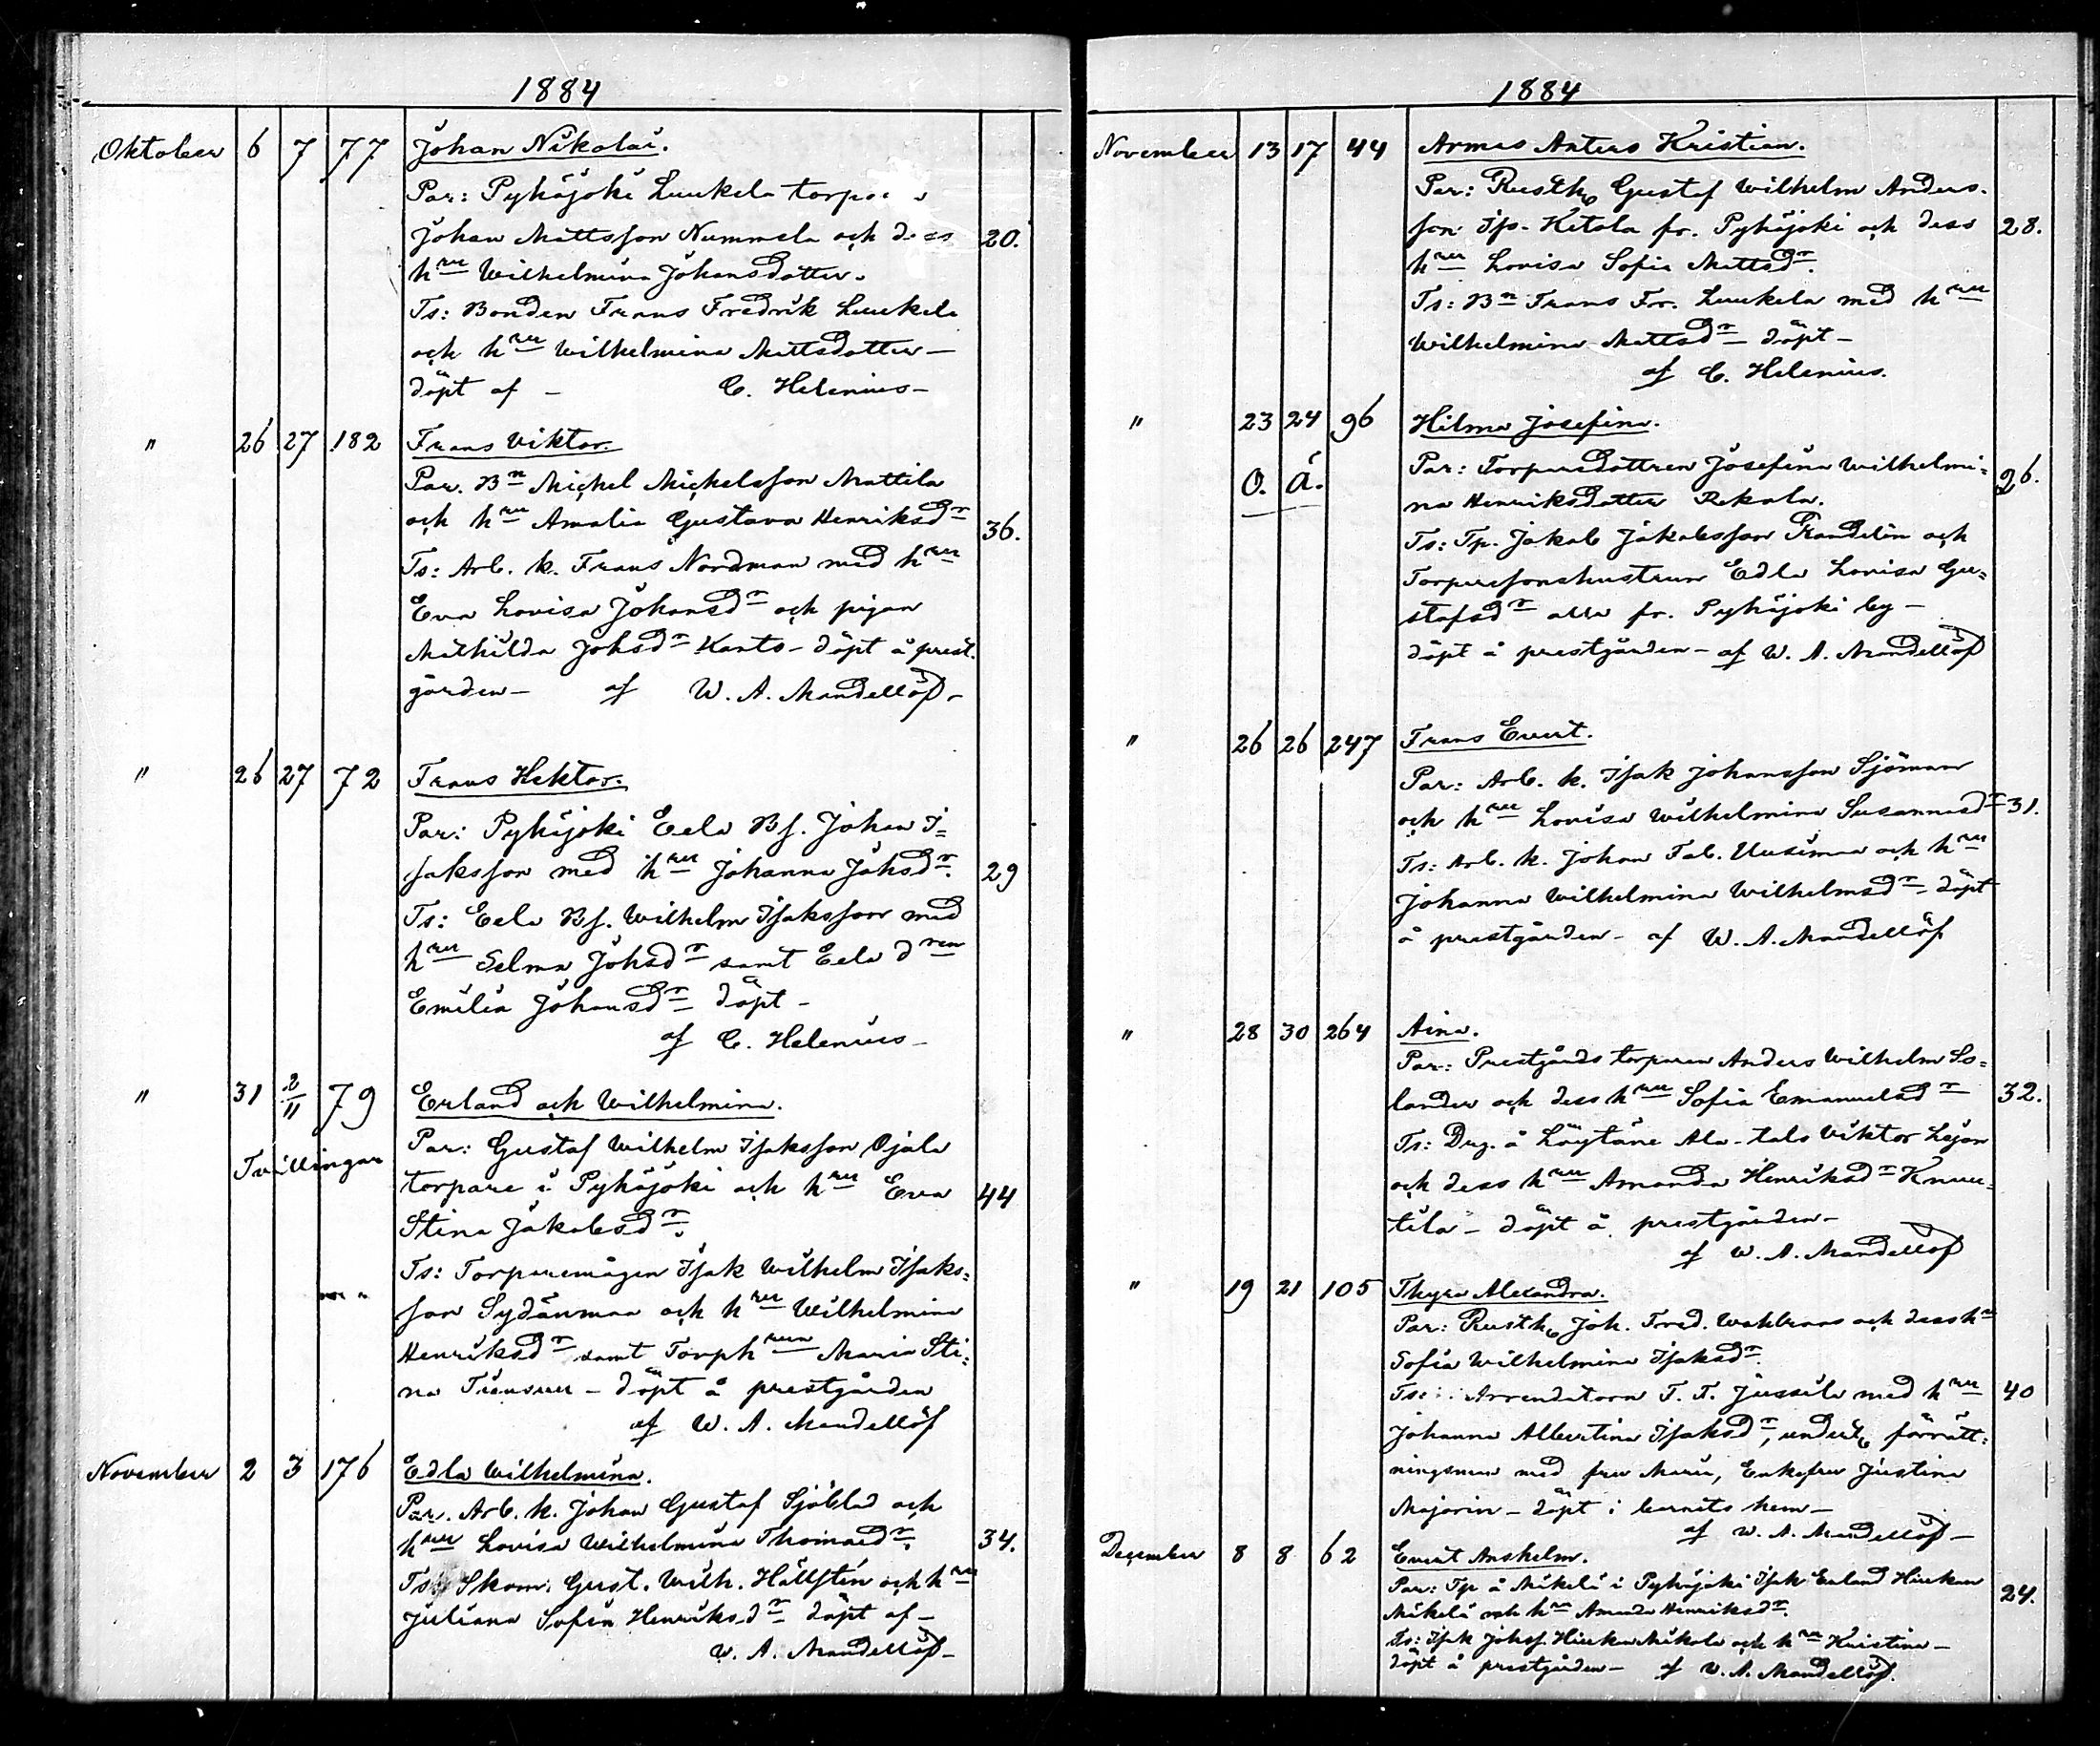 1884
Oktober 6 7 77 Johan Nikolai.
Par: Pyhäjoki Luukela torpa
Johan Mattsson Nummela och dess 20.
hru Wilhelmina Johansdotter.
Ts: Bonden Frans Fredrik Luukela
och hru Wilhelmina Mattsdotter —
döpt af — C. Helenius —
" 26 27 182 Frans Viktor.
Par. Bn Michel Michelsson Mattila
och hru Amalia Gustava Henriksdr 36.
Ts: Arb. k. Frans Nordman med hru
Eva Lovisa Johansdr och pigan
Mathilda Johsdr Kanto — döpt å prest-
gården — af W. A. Mandellöf —
" 26 27 72 Frans Hektor.
Par: Pyhäjoki Eela Bs. Johan I=
saksson med hru Johanna Johsdr. 29
Ts: Eela Bs. Wilhelm Isaksson med
hru Selma Johsdr samt Eela dren
Emilia Johansdr döpt —
af C. Helenius —
" 31 2/11 79 Erland och Wilhelmina.
Tvillingar
Par: Gustaf Wilhelm Isaksson Ojala
torpare i Pyhäjoki och hru Eva 44
Stina Jakobsdr.
Ts: Torparemågen Isak Wilhelm Isaks=
son Sydänmaa och hru Wilhelmina
Henriksdr samt Torph Maria Sti=
na — döpt å prestgården
af W. A. Mandellöf
November 2 3 176 Edla Wilhelmina.
Par. Arb. k. Johan Gustaf Sjöblad och
hru Lovisa Wilhelmina Thomasdr. 34.
Ts: Skom. Gust. Wilh. Hällstén och hru
Juliana Sofia Henriksdr döpt af —
W. A. Mandellöf —
1884
November 13 17 44 Armas Anters Kristian.
Par: Rusth Gustaf Wilhelm Anders-
son Ketola fr. Pyhäjoki och dess 28.
hru Lovisa Sofia Mattsdr.
Ts: Bn Frans Fr. Luukela med hru
Wilhelmina Mattsdr — döpt —
af C. Helenius.
" 23 24 96 Hilma Josefina.
O. Ä.
Par: Torparedottren Josefina Wilhelmi= 26.
na Henriksdotter Rekola.
Ts: Tp. Jakob Jakobsson Randelin och
Torparesonshustrun Edla Lovisa Gu=
stafsdr alla fr. Pyhäjoki by —
döpt å prestgården — af W. A. Mandellöf
" 26 26 247 Frans Evert.
Par: Arb. k. Isak Johansson Sjöman
och hru Lovisa Wilhelmina Susannasdr 31.
Ts: Arb. k. Johan Fab. Uusimaa och hru
Johanna Wilhelmina Wilhelmsdr — döpt
å prestgården — af W. A. Mandellöf
" 28 30 264 Aina.
Par: Prestgårds torparen Anders Wilhelm So=
lander och dess hru Sofia Emanuelsdr 32.
Ts: Drg. å Löytäne Ala-talo Viktor Lejon
och dess hru Amanda Henriksdr Knuu=
tila — döpt å prestgården —
af W. A. Mandellöf
" 19 21 105 Thyra Alexandra.
Par: Rusth Joh. Fred. Wahlroos och dess hu
Sofia Wilhelmina Isaksdr.
Ts: Arrendatorn F. F. Jussila med hru 40
Johanna Albertina Isaksdr, undert. förrätt=
ningsman med fru Maria, Enkefru Justina
Majorin — döpt i barnets hem —
af W. A. Mandellöf —
December 8 8 62 Evert Anshelm.
Par: Tp å Mikola i Pyhäjoki Isak Erland
Mikola och hru Amanda Henriksdr. 24.
Ts: Isak Johss. Mikola och hru Kristina —
döpt å prestgården — af W. A. Mandellöf.